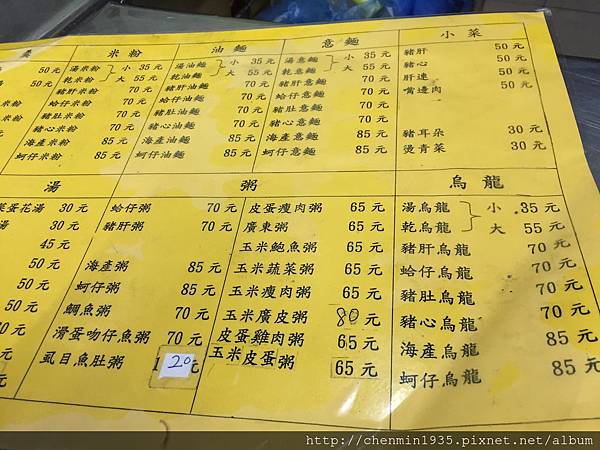 米粉
湯米粉 小 35元
乾米粉 大 55元
豬肝米粉 70元
蛤仔米粉 70元
豬肚米粉 70元
豬心米粉 70元
海產米粉 85元
蚵仔米粉 85元
油麵
湯油麵 小 35元
乾油麵 大 55元
豬肝油麵 70元
蛤仔油麵 70元
豬肚油麵 70元
豬心油麵 70元
海產油麵 85元
蚵仔油麵 85元
意麵
湯意麵 小 35元
乾意麵 大 55元
豬肝意麵 70元
蛤仔意麵 70元
豬肚意麵 70元
豬心意麵 70元
海產意麵 85元
蚵仔意麵 85元
小菜
豬肝 50元
豬心 50元
肝連 50元
嘴邊肉 50元
豬耳朵 30元
燙青菜 30元
湯
菜蛋花湯 30元
湯 30元
45元
50元
50元
50元
70元
粥
蛤仔粥 70元
豬肝粥 70元
海產粥 85元
蚵仔粥 85元
鯛魚粥 70元
滑蛋吻仔魚粥 70元
虱目魚肚粥 120元
皮蛋瘦肉粥 65元
廣東粥 65元
玉米鮑魚粥 65元
玉米蔬菜粥 65元
玉米瘦肉粥 65元
玉米廣皮粥 80元
皮蛋雞肉粥 65元
玉米皮蛋粥 65元
烏龍
湯烏龍 小 35元
乾烏龍 大 55元
豬肝烏龍 70元
蛤仔烏龍 70元
豬肚烏龍 70元
豬心烏龍 70元
海產烏龍 85元
蚵仔烏龍 85元
http://chenmin1935.pixnet.net/album